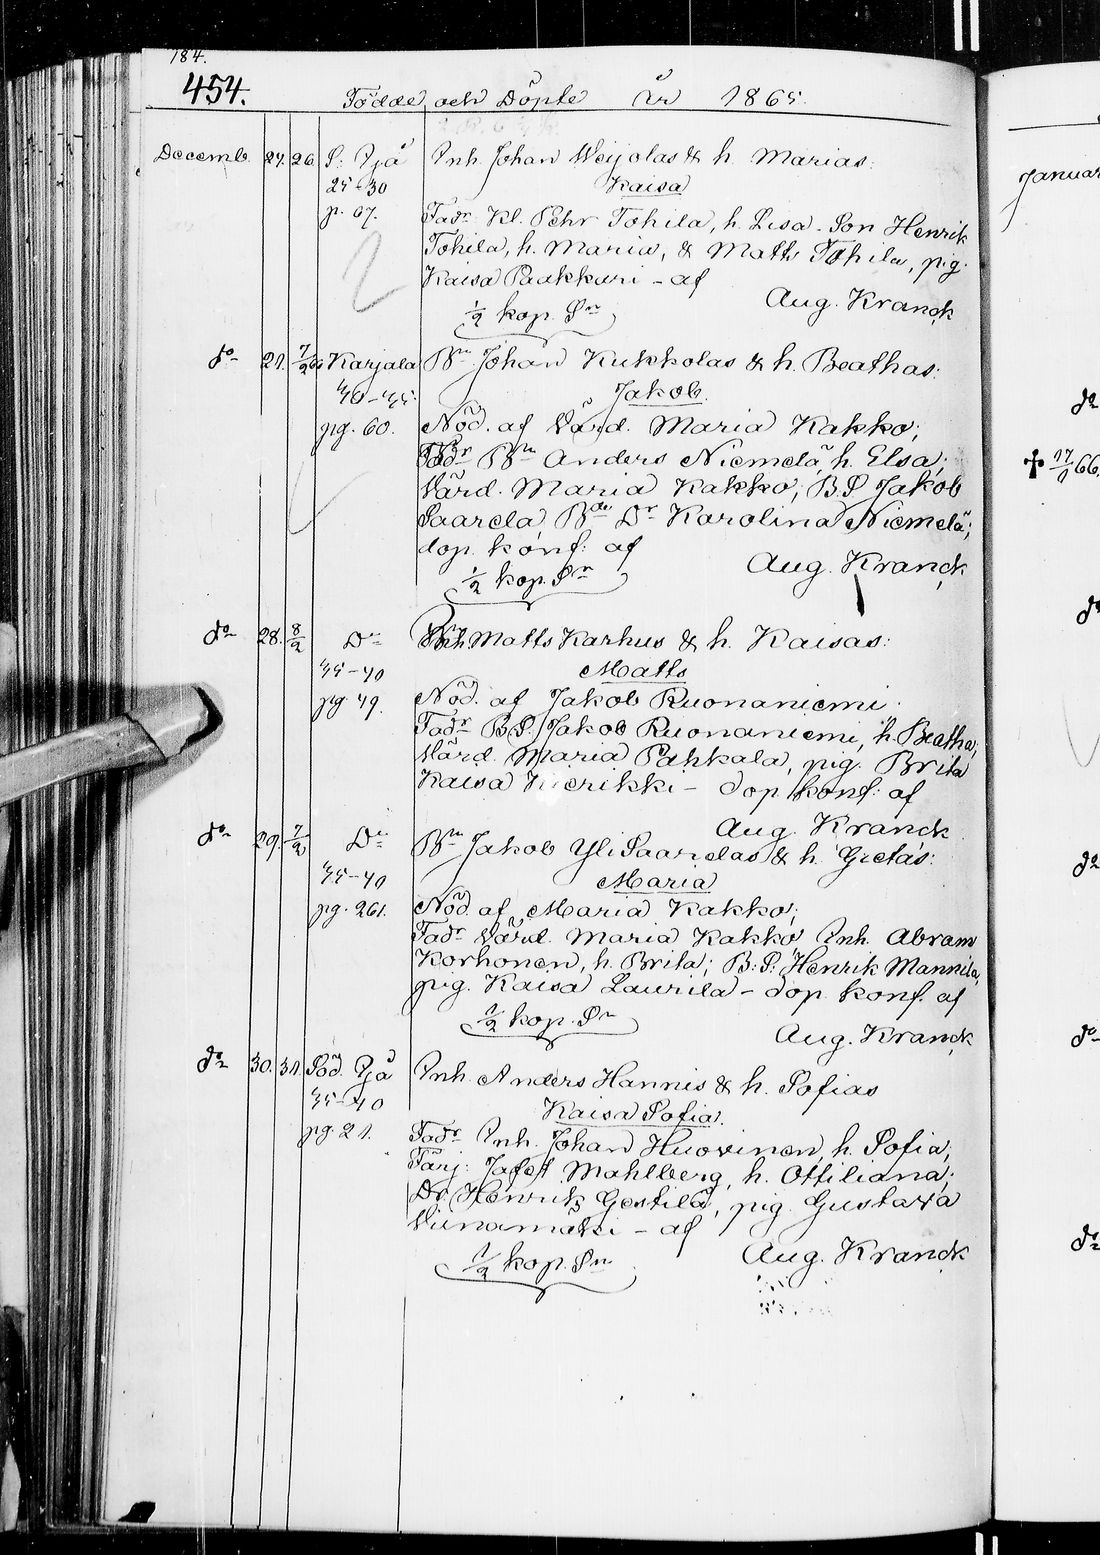 184.
454. Födde och Döpte År 1865.
Decemb. 24. 26. S: Pjå Inh. Johan Weijolas & h. Marias:
25-30 Kaisa
p. 67. Fadr Kl. Pehr Tohila, h. Lisa. Son Henrik
Tohila, h. Maria, & Matts Tohila, pig.
Kaisa Paakkari - af
Aug. Kranck
1/2 kop. Sr
do 21. 7/2 66 Karjala Bn Johan Kukkolas & h. Beathas:
40-45. Jakob.
pg. 60. Nöd. af Värd. Maria Kakko;
Fadr Bn Anders Niemelä, h. Elsa;
Värd. Maria Kakko; B.S. Jakob
Saarela, Bde Dr Karolina Niemelä;
dop. konf: af
Aug. Kranck
1/2 kop. Sn
do 28. 8/2 Do Bn Matts Karhus & h. Kaisas:
35-40 Matts
pg 49. Nöd. af Jakob Ruonaniemi.
Fadr B.S. Jakob Ruonaniemi, h. Beatha;
Värd. Maria Pahkala, pig. Brita
Kaisa - dop. konf: af
Aug. Kranck
do 29. 7/2 Do Bn Jakob YliSaarelas & h. Gretas:
35-40 Maria
pg. 261. Nöd. af Maria Kakko;
Fadr Värd. Maria Kakko, Inh. Abram
Korhonen, h. Brita; B.S: Henrik Mannila,
pig. Kaisa Laurila - dop. konf. af
1/2 kop. Sn
Aug. Kranck
do 30. 31. Söd. Pjå Inh. Anders Hannis & h. Sofias
35-40 Kaisa Sofia.
pg. 21. Fadr Inh. Johan Huovinen, h. Sofia,
Färj: Jafet Mahlberg, h. Ottiliana;
Dr. Henrik Gestilä, pig. Gustava
Viinamäki - af
Aug. Kranck
1/2 kop. Sn
Januar
do
17/1 66.
do
do
do
do